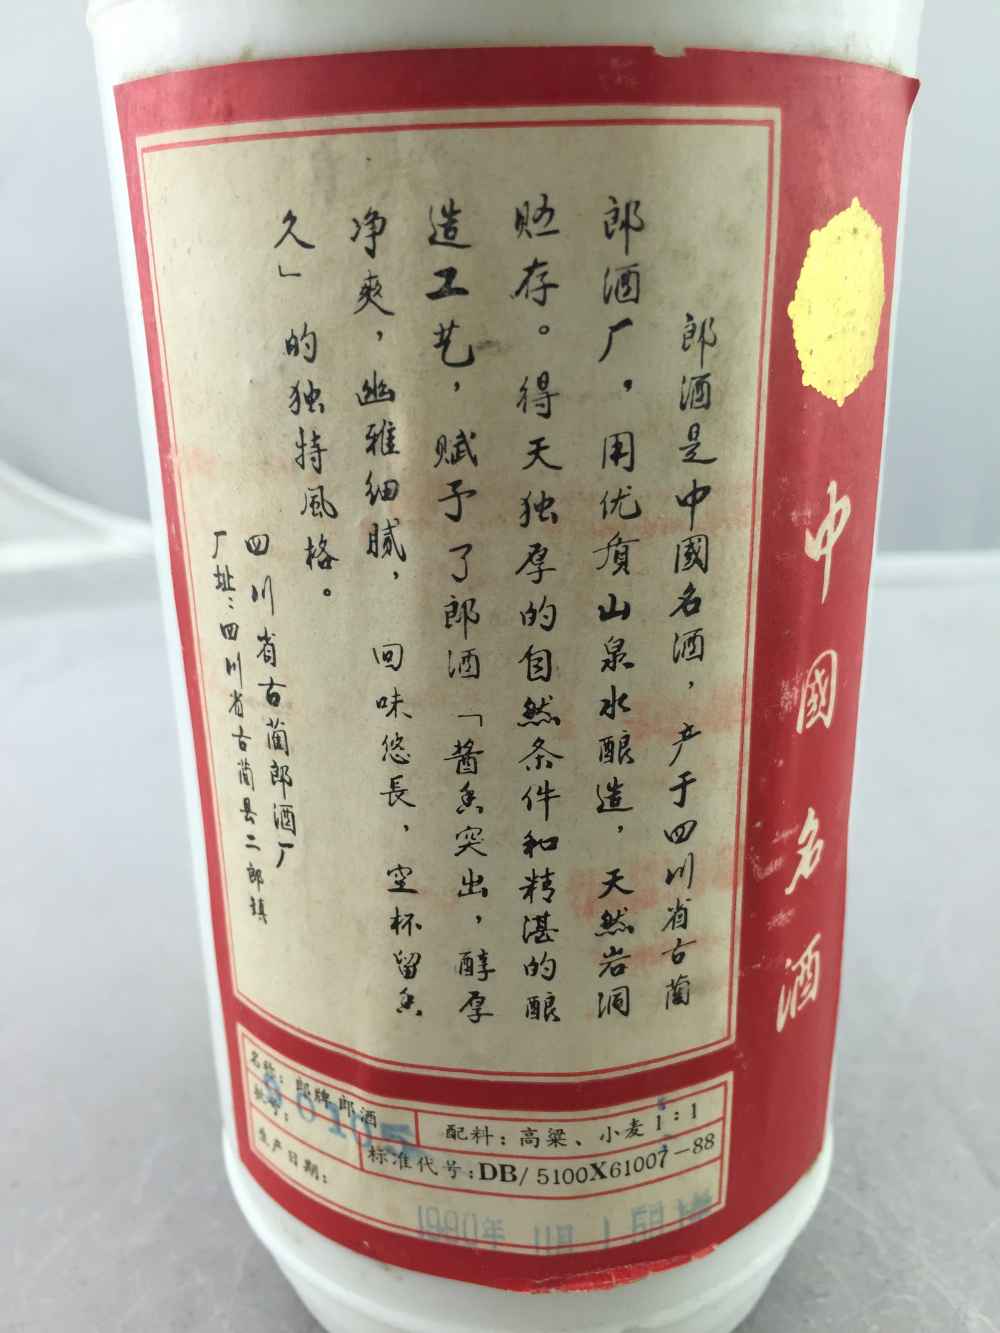 中國名酒
郎酒是中國名酒，产于四川省古蔺
郎酒厂。用优质山泉水酿造，天然岩洞
贮存。得天独厚的自然条件和精湛的酿
造工艺，赋予了郎酒「酱香突出，醇厚
净爽，幽雅细腻，回味悠長，空杯留香
久」的独特風格。
四川省古蔺郎酒厂
厂址：四川省古蔺县二郎镇
名称：郎牌郎酒
配料：高粱、小麦1：1
批号：
标准代号：DB/5100X61007-88
生产日期：
1990年